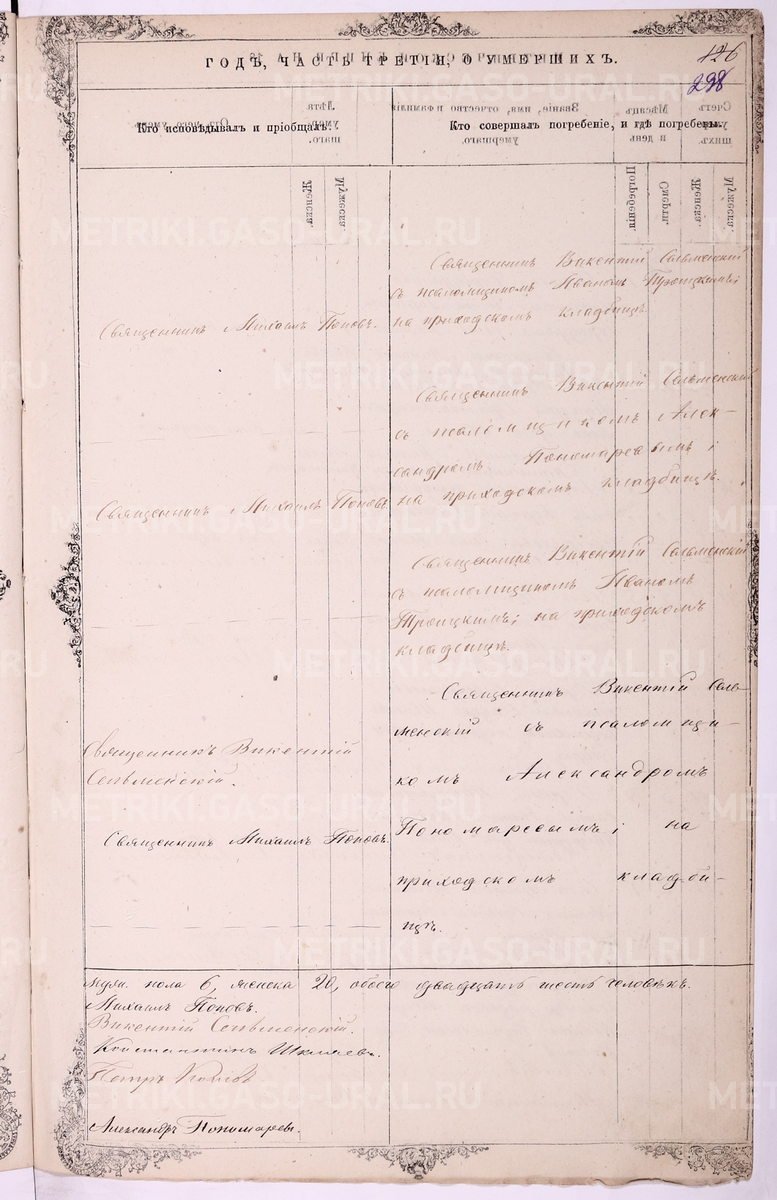 126
298
ГОДЪ, ЧАСТЬ ТРЕТІЯ, О УМЕРШИХЪ.
Кто исповѣдывалъ и пріобщалъ.
Кто совершалъ погребеніе, и гдѣ погребены.
Священникъ Михаилъ Поповъ.
Священникъ Викентій Сельменскій
съ псаломщикомъ Иваномъ Троицкимъ;
на приходскомъ кладбищѣ
Священникъ Михаилъ Поповъ.
Священникъ Викентій Сельменскій
съ псаломщикомъ Алек-
сандромъ Пономаревымъ;
на приходскомъ кладбищѣ.
Священникъ Викентій Сельменскій
съ псаломщикомъ Иваномъ
Троицкимъ; на приходскомъ
кладбищѣ.
Священникъ Викентій
Сельменскій.
Священникъ Михаилъ Поповъ.
Священникъ Викентій Сель-
менскій съ псаломщи-
комъ Александромъ
Пономаревымъ; на
приходскомъ кладби-
щѣ.
Муж. пола 6, женска 20, обоего двадцать шесть человѣкъ.
Михаилъ Поповъ.
Викентій Сельменскій.
Константинъ
Петръ
Александръ Пономаревъ.
METRIKI.GASO-URAL.RU